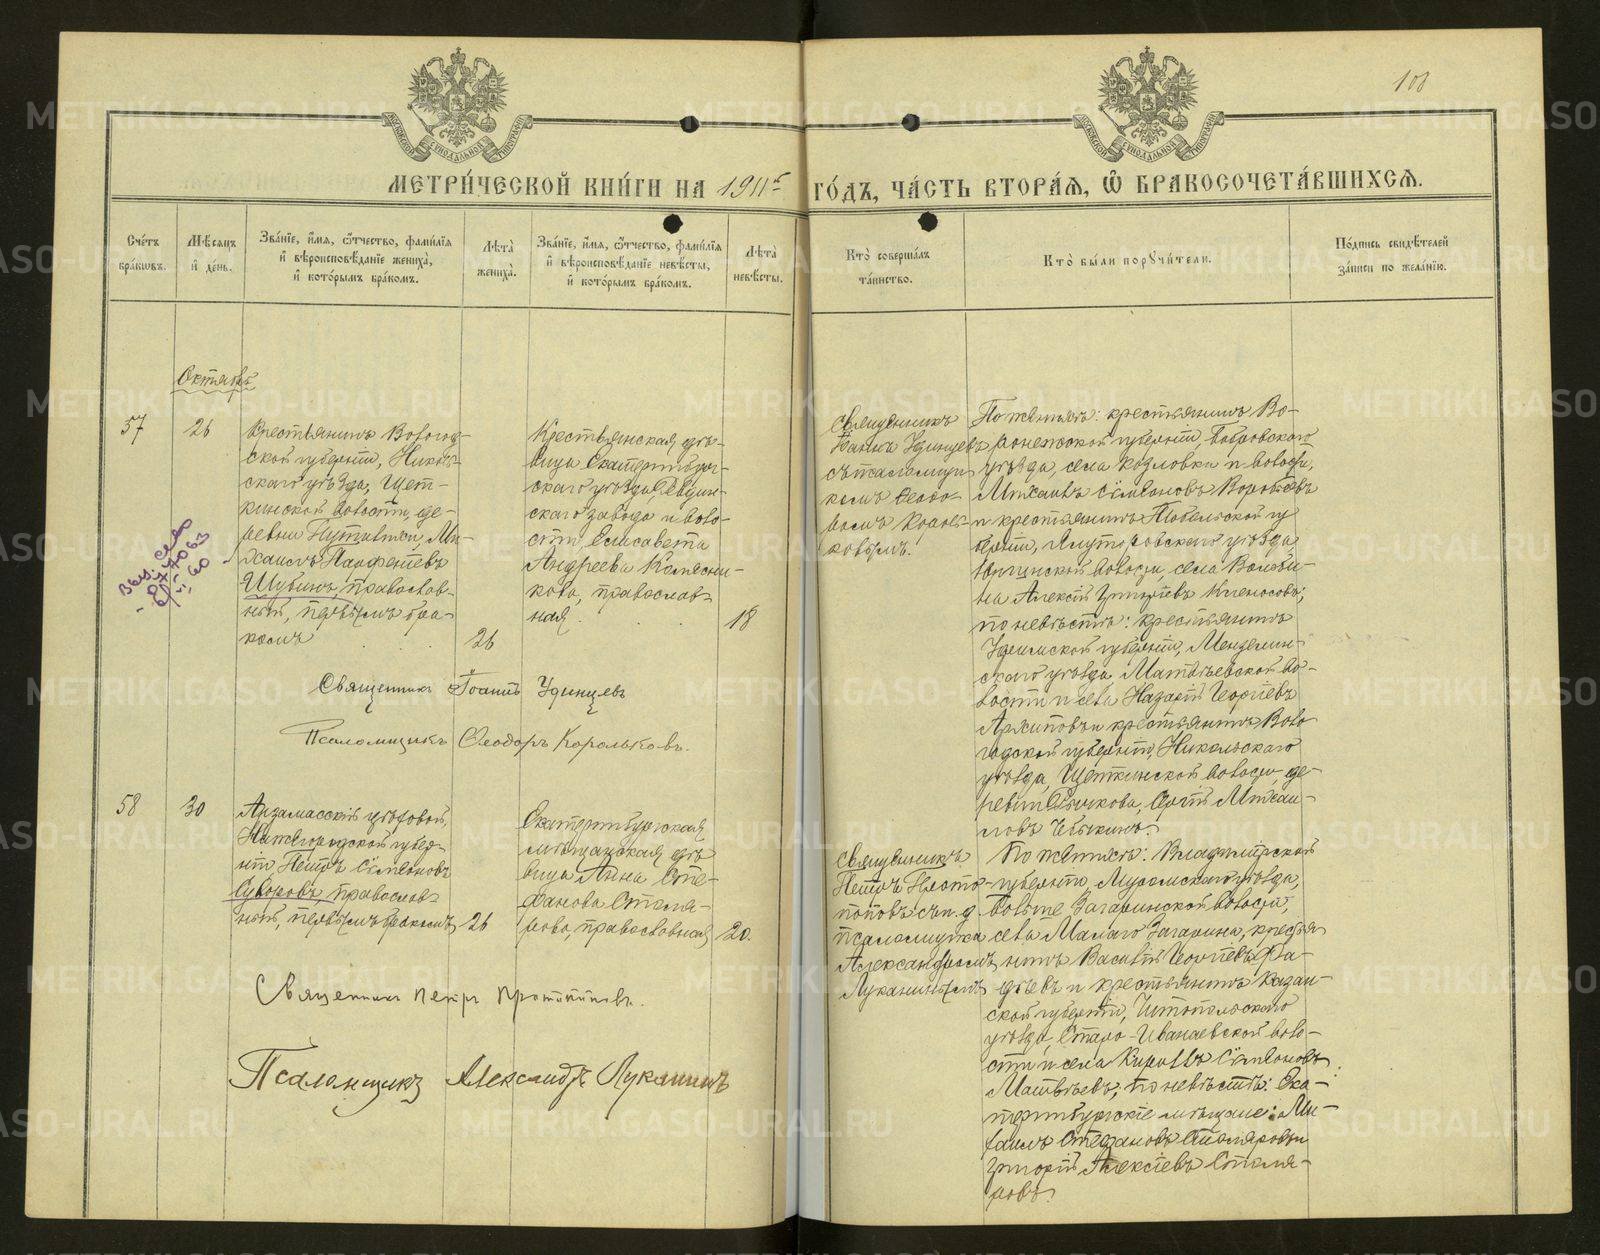 108
МЕТРИ́ЧЕСКОЙ КНИ́ГИ НА 1911й ГО́ДЪ, ЧА́СТЬ ВТОРА́Я, Ѿ БРАКОСОЧЕТА́ВШИХСЯ.
Сче́тъ
бра́кѡвъ.
Мѣ́сяцъ
и҆ де́нь.
Зва́нїе, и҆́мя, ѻ҆́тчество, фами́лїя
и҆ вѣроисповѣ́данїе жениха̀,
и҆ кото́рымъ бра́комъ.
Лѣ́та̀
жениха̀.
Зва́нїе, и҆́мя, ѻ҆́тчество, фами́лїя
и҆ вѣроисповѣ́данїе невѣ́сты,
и҆ кото́рымъ бра́комъ.
Лѣ́та̀
невѣ́сты.
Кто̀ соверша́лъ
та́инство.
Кто̀ бы́ли порꙋчи́тели.
По́дпись свидѣ́телей
за́писи по жела́нїю.
Октябрь
57
26
Крестьянинъ Вологод-
ской губернiи, Николь-
скаго уѣзда, Щет-
кинской волости, де-
ревни Путиловки, Ми-
хаилъ Панфенiевъ
Шубинъ, православ-
ный, первымъ бра-
комъ
26
Крестьянская дѣ-
вица Екатеринбург-
скаго уѣзда, Ревдин-
скаго завода и воло-
сти, Елисавета
Андреева Колясни-
кова, православ-
ная.
18
Священникъ
Iоаннъ Удинцевъ
съ псаломщи-
комъ Ѳеодо-
ромъ Король-
ковымъ.
По женихѣ: крестьянинъ Во-
ронежской губернiи, Бобровскаго
уѣзда, села Козловки и волости,
Михаилъ Симеоновъ Воробьевъ
и крестьянинъ Тобольской гу
бернiи, Ялуторовскаго уѣзда
волости, села
на Алексiй Григорiевъ
по невѣстѣ: крестьянинъ
Уфимской губернiи, Мензелин-
скаго уѣзда, Матвѣевской во-
лости и села Назарiй Георгiевъ
Архиповъ и крестьянинъ Воло
годской губернiи, Никольскаго
уѣзда, Щеткинской волости, де-
ревни Сычкова, Сергiй Михаи-
ловъ Чебыкинъ.
Священникъ Iоаннъ Удинцевъ
Псаломщикъ Ѳеодоръ Корольковъ.
58
30
Арзамасскiй цеховой,
Нижегородской губер-
нiи, Петръ Симеоновъ
Суворовъ, православ-
ный, первымъ бракомъ
26
Екатеринбургская
мѣщанская дѣ
вица Анна Сте-
фанова Столя-
рова, православная
20.
Священникъ
Петръ Прото-
поповъ съ и. д.
псаломщика
Александромъ
Луканинымъ
По женихѣ: Владимiрской
губернiи, Муромскаго уѣзда,
Загаринской волости,
села Малаго Загарина, крестья
нинъ Василiй Георгiевъ Фа-
дѣевъ и крестьянинъ Казан-
ской губернiи, Чистопольскаго
уѣзда, Старо-Иванаевской воло-
сти и села Кириллъ Симеоновъ
Матвѣевъ; по невѣстѣ: Ека-
теринбургскiе мѣщане: Ми-
хаилъ Стефановъ Столяровъ и
Григорiй Алексiевъ Столя-
ровъ.
Священникъ Петръ Протопоповъ.
Псаломщикъ Александръ Луканинъ